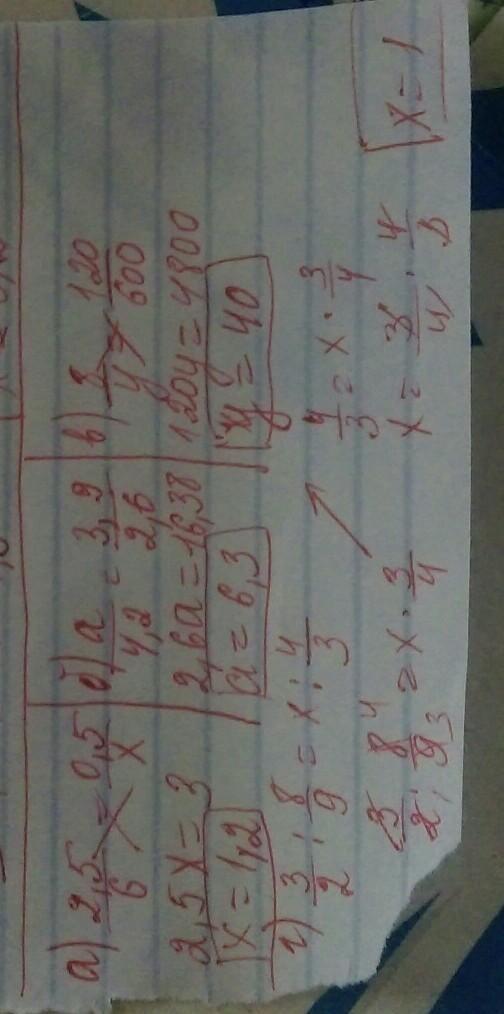 а) 2,5/6 = 0,5/x
2,5x = 3
x = 1,2
б) a/4,2 = 3,9/2,6
2,6a = 16,38
a = 6,3
в) 8/y = 120/600
120y = 4800
y = 40
г) 3/2 : 8/9 = x : 4/3
3/2 · 8/9 = x · 3/4
4/3 = x · 3/4
x = 3/4 · 4/3
x = 1